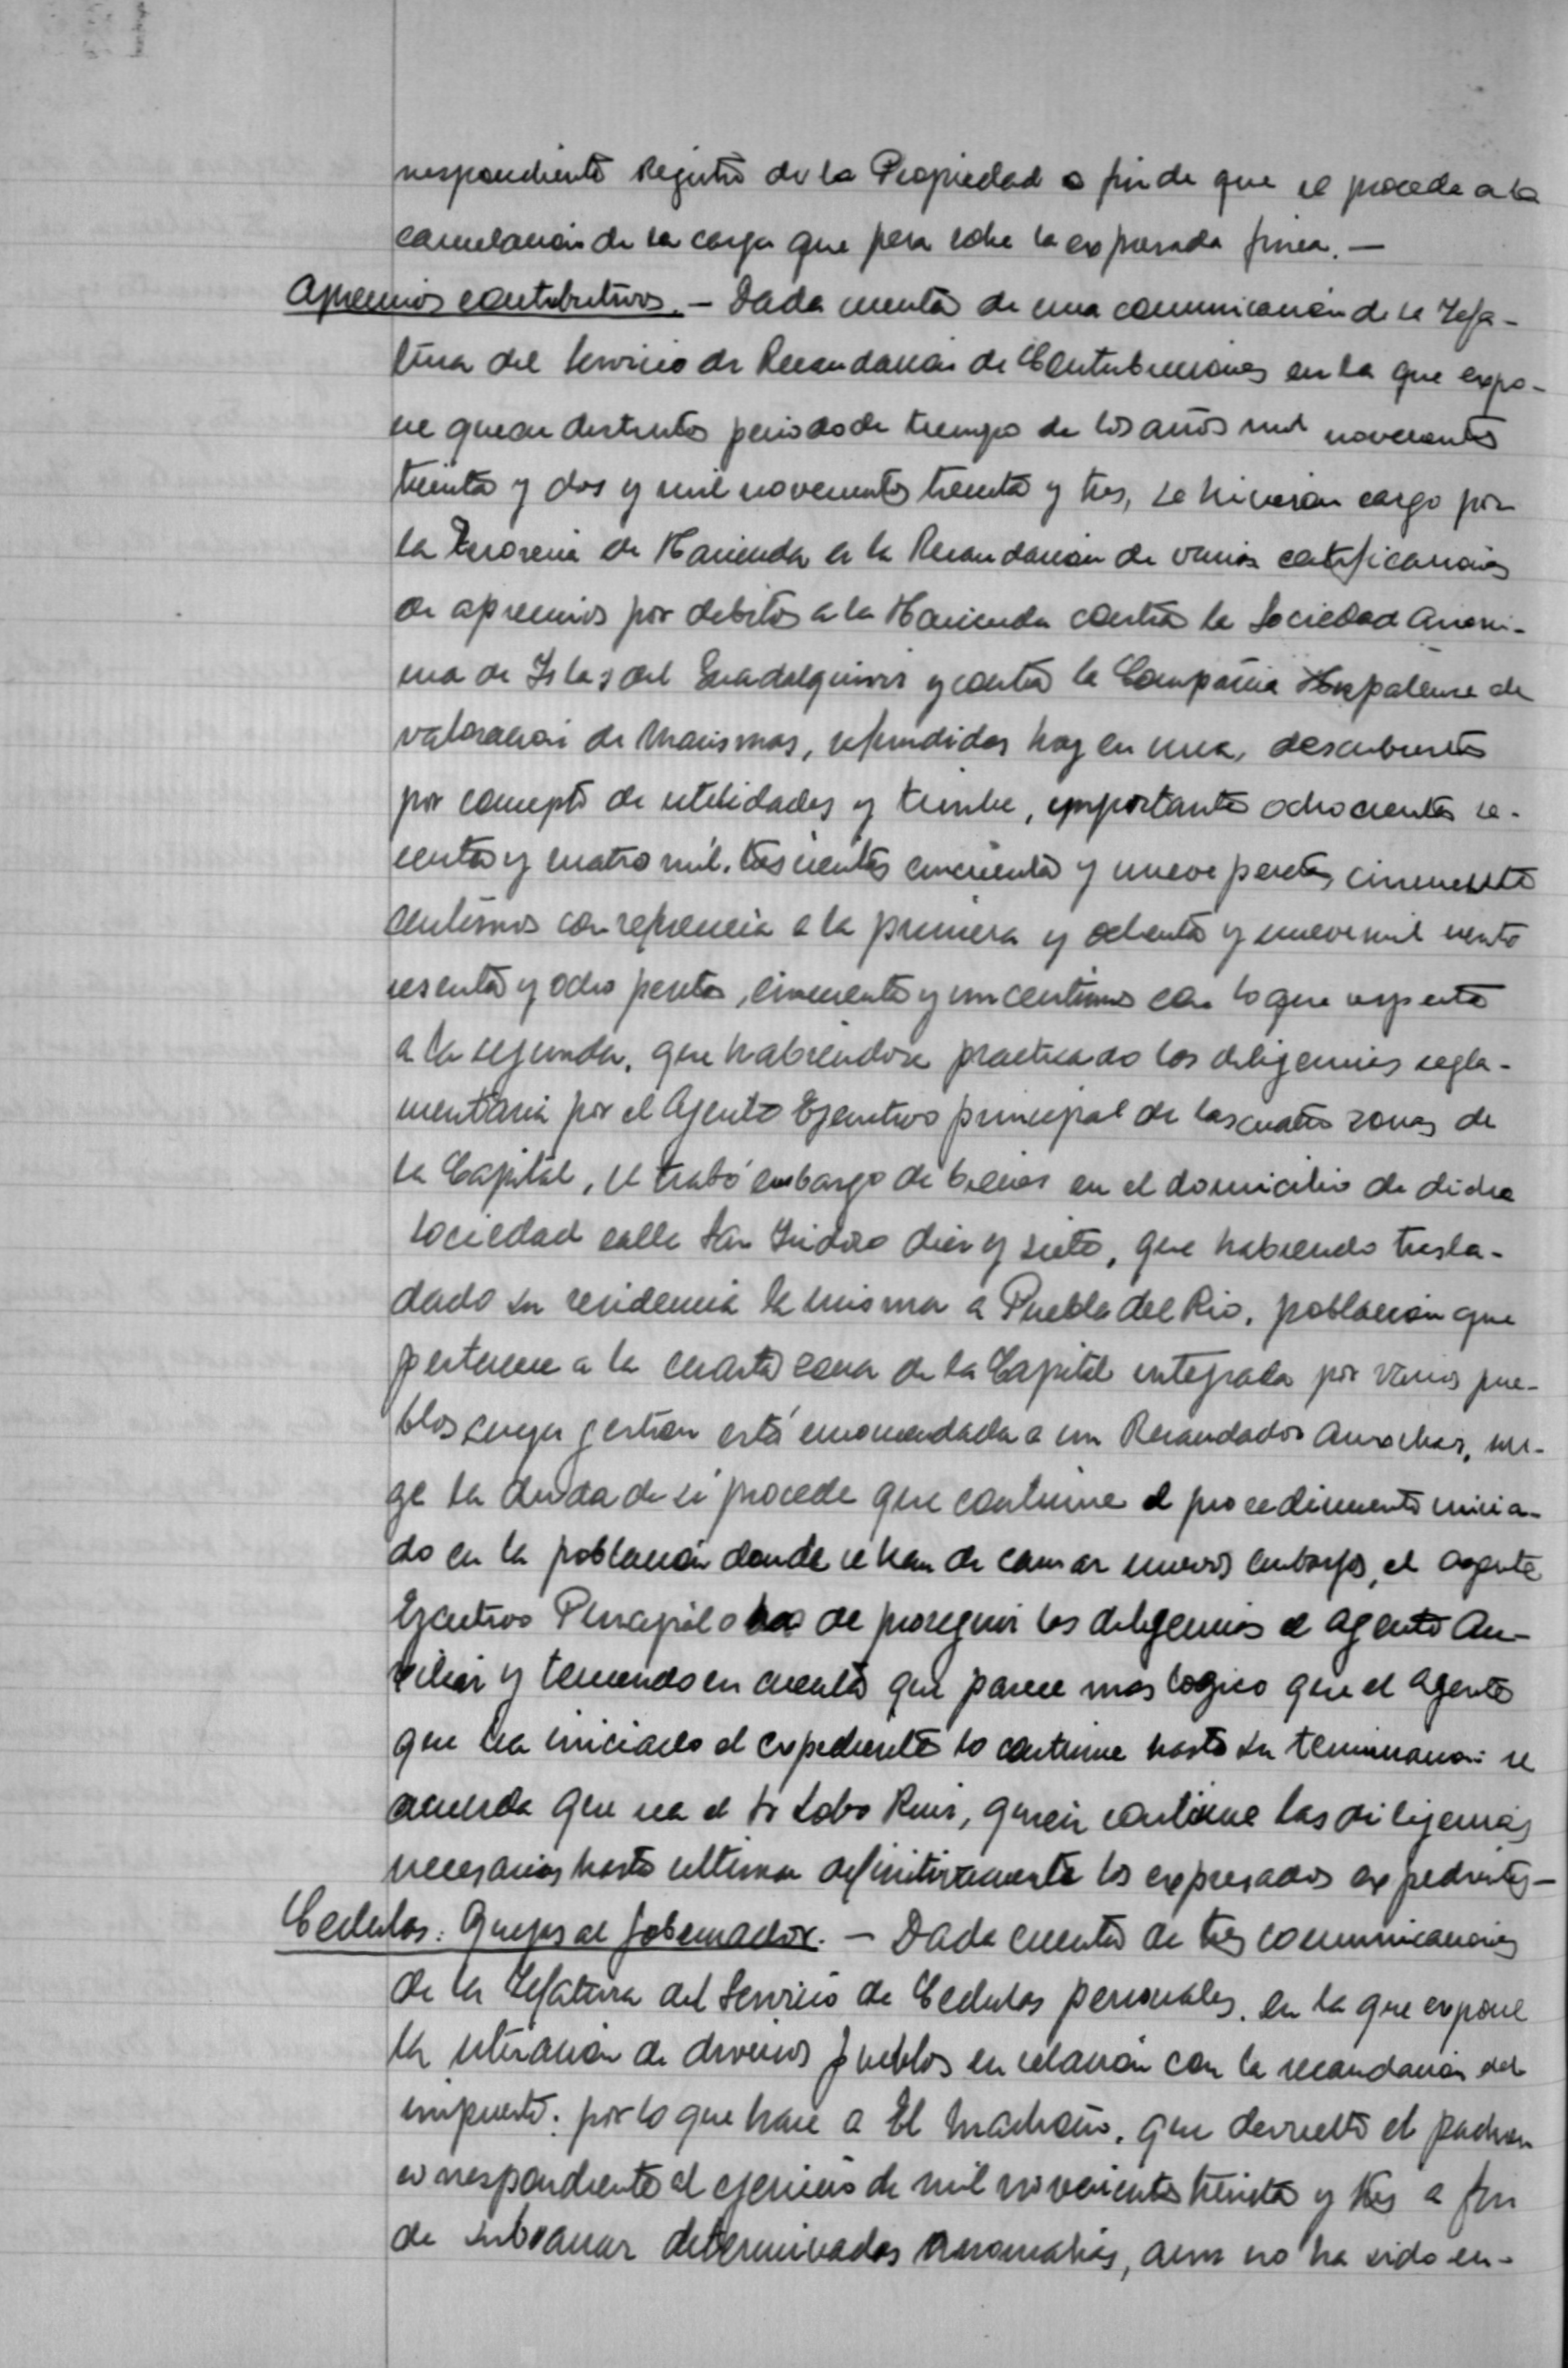 respondiente Registro de la Propiedad a fin de que se proceda a la
cancelación de la carga que pesa sobre la expresada finca. —
Apremios contributivos. — Dada cuenta de una comunicación de la Jefa-
tura del Servicio de Recaudación de Contribuciones en la que expo-
ne que en distintos periodo de tiempo de los años mil novecientos
treinta y dos y mil novecientos treinta y tres, se hicieron cargo por
la Tesorería de Hacienda a la Recaudación de varias certificaciones
de apremios por debitos a la Hacienda contra la Sociedad Anoni-
ma de Islas del Guadalquivir y contra la Compañia Hispalense de
valoración de Marismas, refundidas hoy en una, descubiertos
por concepto de utilidades y timbre, importantes ochocientas se-
senta y cuatro mil, trescientas cincuenta y nueve pesetas, cincuenta
centimos con referencia a la primera y ochenta y nueve mil ciento
sesenta y ocho pesetas, cincuenta y un centimos con lo que respecta
a la segunda, que habiendose practicado las diligencias regla-
mentaria por el Agente Ejecutivo principal de las cuatro zonas de
la Capital, se trabó embargo de bienes en el domicilio de dicha
Sociedad calle San Isidoro diez y siete, que habiendo trasla-
dado su residencia la misma a Puebla del Rio, población que
pertenece a la cuarta zona de la Capital integrada por varios pue-
blos cuya gestion está encomendada a un Recaudador Auxiliar, sur-
ge la duda de si procede que continue el procedimiento inicia-
do en la población donde se han de causar nuevos embargos, el agente
Ejecutivo Principal o ha de proseguir las diligencias el agente Au-
xiliar y teniendo en cuenta que parece mas logico que el agente
que ha iniciado el expediente lo continue hasta su terminación se
acuerda que sea el Sr Lobo Ruiz, quien continue las diligencias
necesarias hasta ultimar definitivamente los expresados expedientes —
Cedulas: Quejas al Gobernador. — Dada cuenta de tres comunicaciones
de la Jefatura del Servicio de Cedulas personales, en la que expone
la situación de diversos pueblos en relación con la recaudación del
impuesto: por lo que hace a El Madroño, que devuelto el padron
correspondiente al ejercicio de mil novecientos treinta y tres a fin
de subsanar determinadas anomalias, aun no ha sido en-